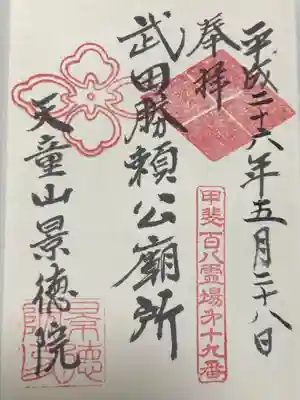 平成二十六年五月二十八日
奉拝
甲斐百八霊場第十九番
武田勝頼公廟所
天童山景徳院
景徳院印